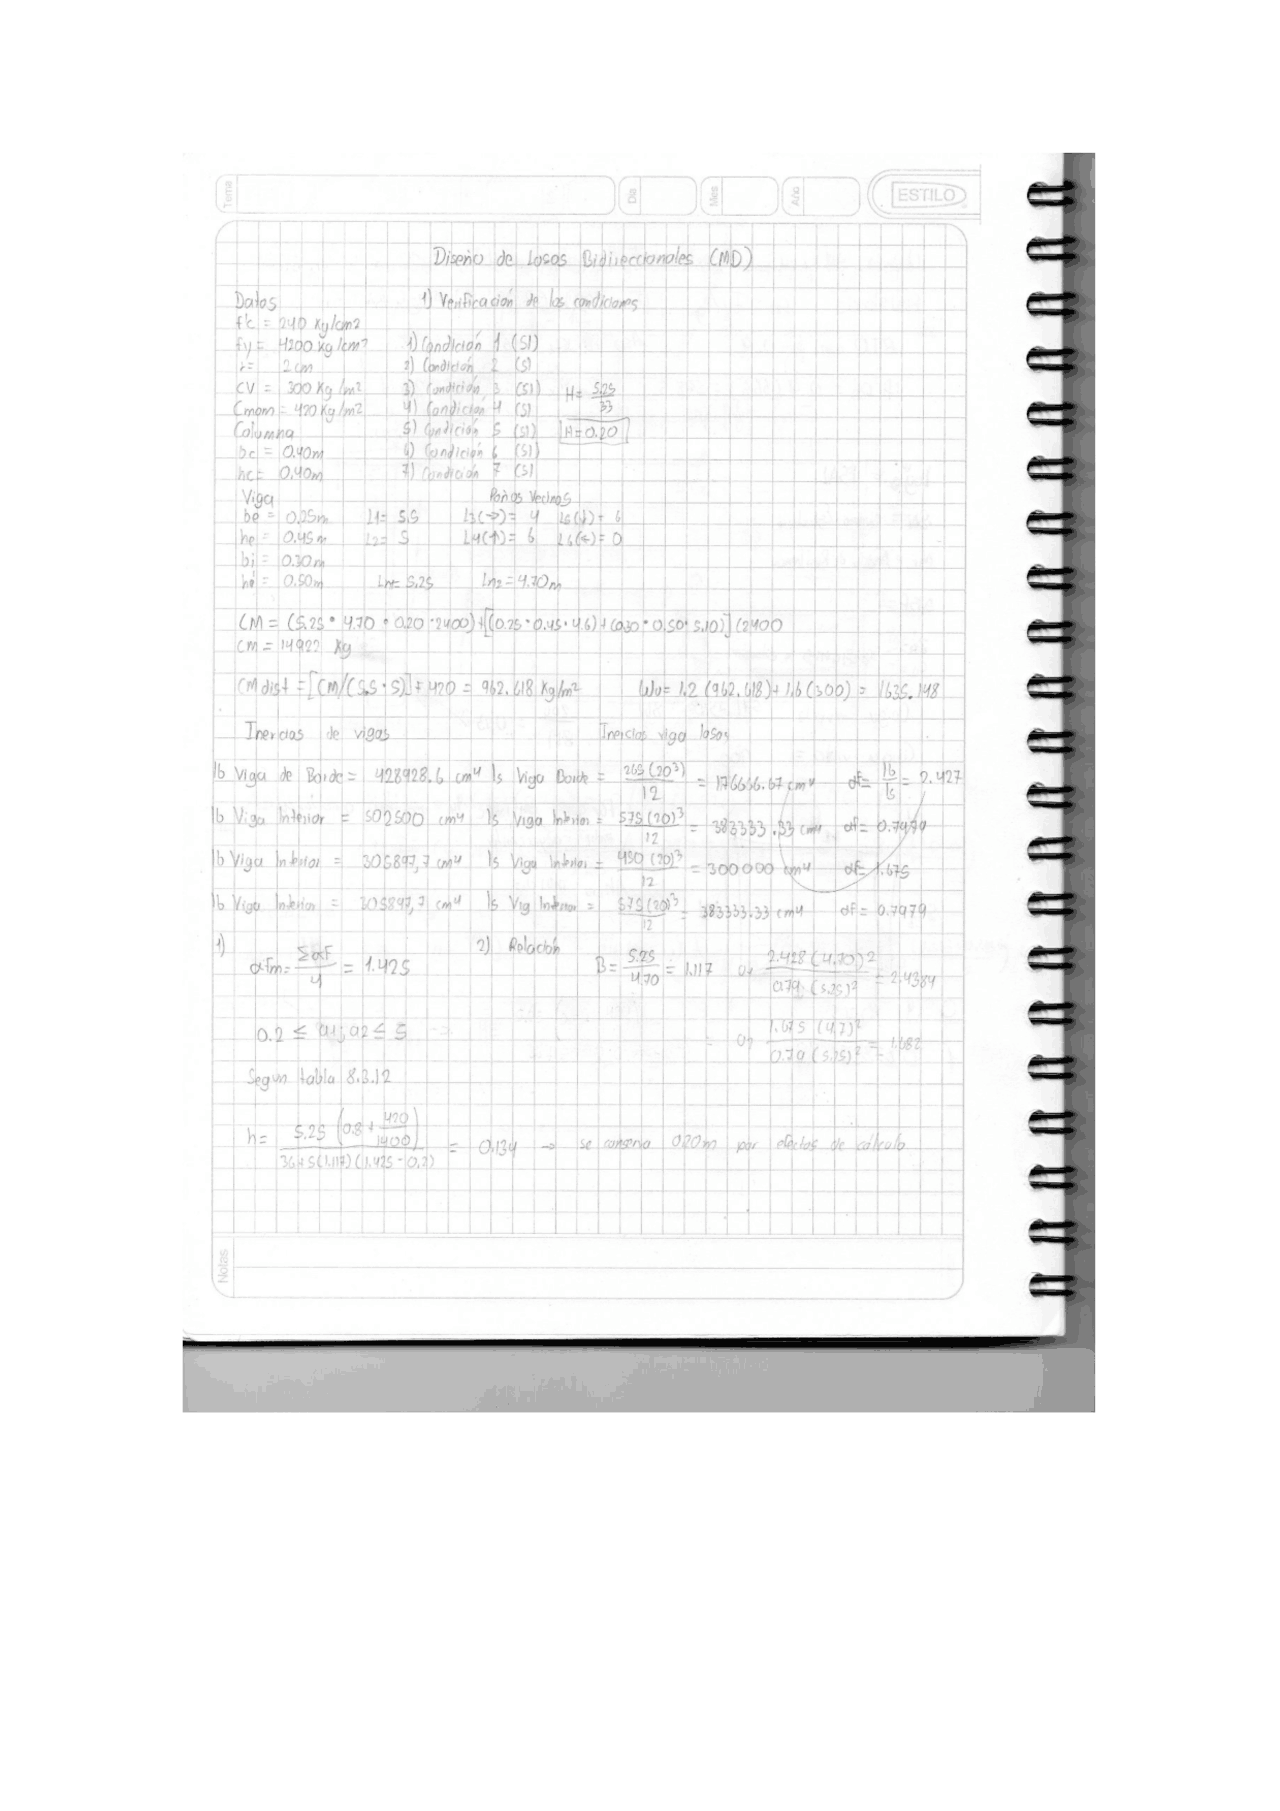 Tema
Día
Mes
Año
ESTILO
Diseño de Losas Bidireccionales (MD)
Datos 1) Verificación de las condiciones
f'c = 240 Kg/cm2
fy = 4200 Kg/cm2 1) Condición 1 (SI)
r = 2 cm 2) Condición 2 (SI)
CV = 300 Kg/m2 3) Condición 3 (SI) H = 5.25/33
Cmam = 420 Kg/m2 4) Condición 4 (SI)
Columna 5) Condición 5 (SI) H = 0.20
bc = 0.40m 6) Condición 6 (SI)
hc = 0.40m 7) Condición 7 (SI)
Viga Paños Vecinos
be = 0.25m L1 = 5.5 L3(→) = 4 L5(↓) = 6
he = 0.45m L2 = 5 L4(↑) = 6 L6(←) = 0
bi = 0.30m
hi = 0.50m Ln1 = 5.25 Ln2 = 4.70m
CM = (5.25 * 4.70 * 0.20 * 2400) + [(0.25 * 0.45 * 4.6) + (0.30 * 0.50 * 5.10)] (2400
CM = 14922 Kg
CM dist = [CM/(5.5 * 5)] + 420 = 962.618 Kg/m2 Wu = 1.2 (962.618) + 1.6 (300) = 1635.148
Inercias de vigas Inercias viga losas
Ib Viga de Borde = 428928.6 cm4 Is Viga Borde = 265(20³)/12 = 176666.67 cm4 αf = Ib/Is = 2.427
Ib Viga Interior = 502500 cm4 Is Viga Interior = 575(20)³/12 = 383333.33 cm4 αf = 0.7979
Ib Viga Interior = 305897,7 cm4 Is Viga Interior = 450(20)³/12 = 300000 cm4 αf = 1.675
Ib Viga Interior = 305897,7 cm4 Is Vig Interior = 575(20)³/12 = 383333.33 cm4 αf = 0.7979
1) 2) Relación
αfm = Σαf/4 = 1.425 B = 5.25/4.70 = 1.117 2.428 (4.70)²/0.79 (5.25)² = 2.4384
0.2 ≤ a1, a2 ≤ 5 1.675 (4.7)²/0.79 (5.25)² = 1.682
Segun tabla 8.3.12
h = 5.25 (0.8 + 420/1400)/36+5(1.117)(1.425-0.2) = 0.134 → se conserva 0.20m por efectos de cálculo
Notas